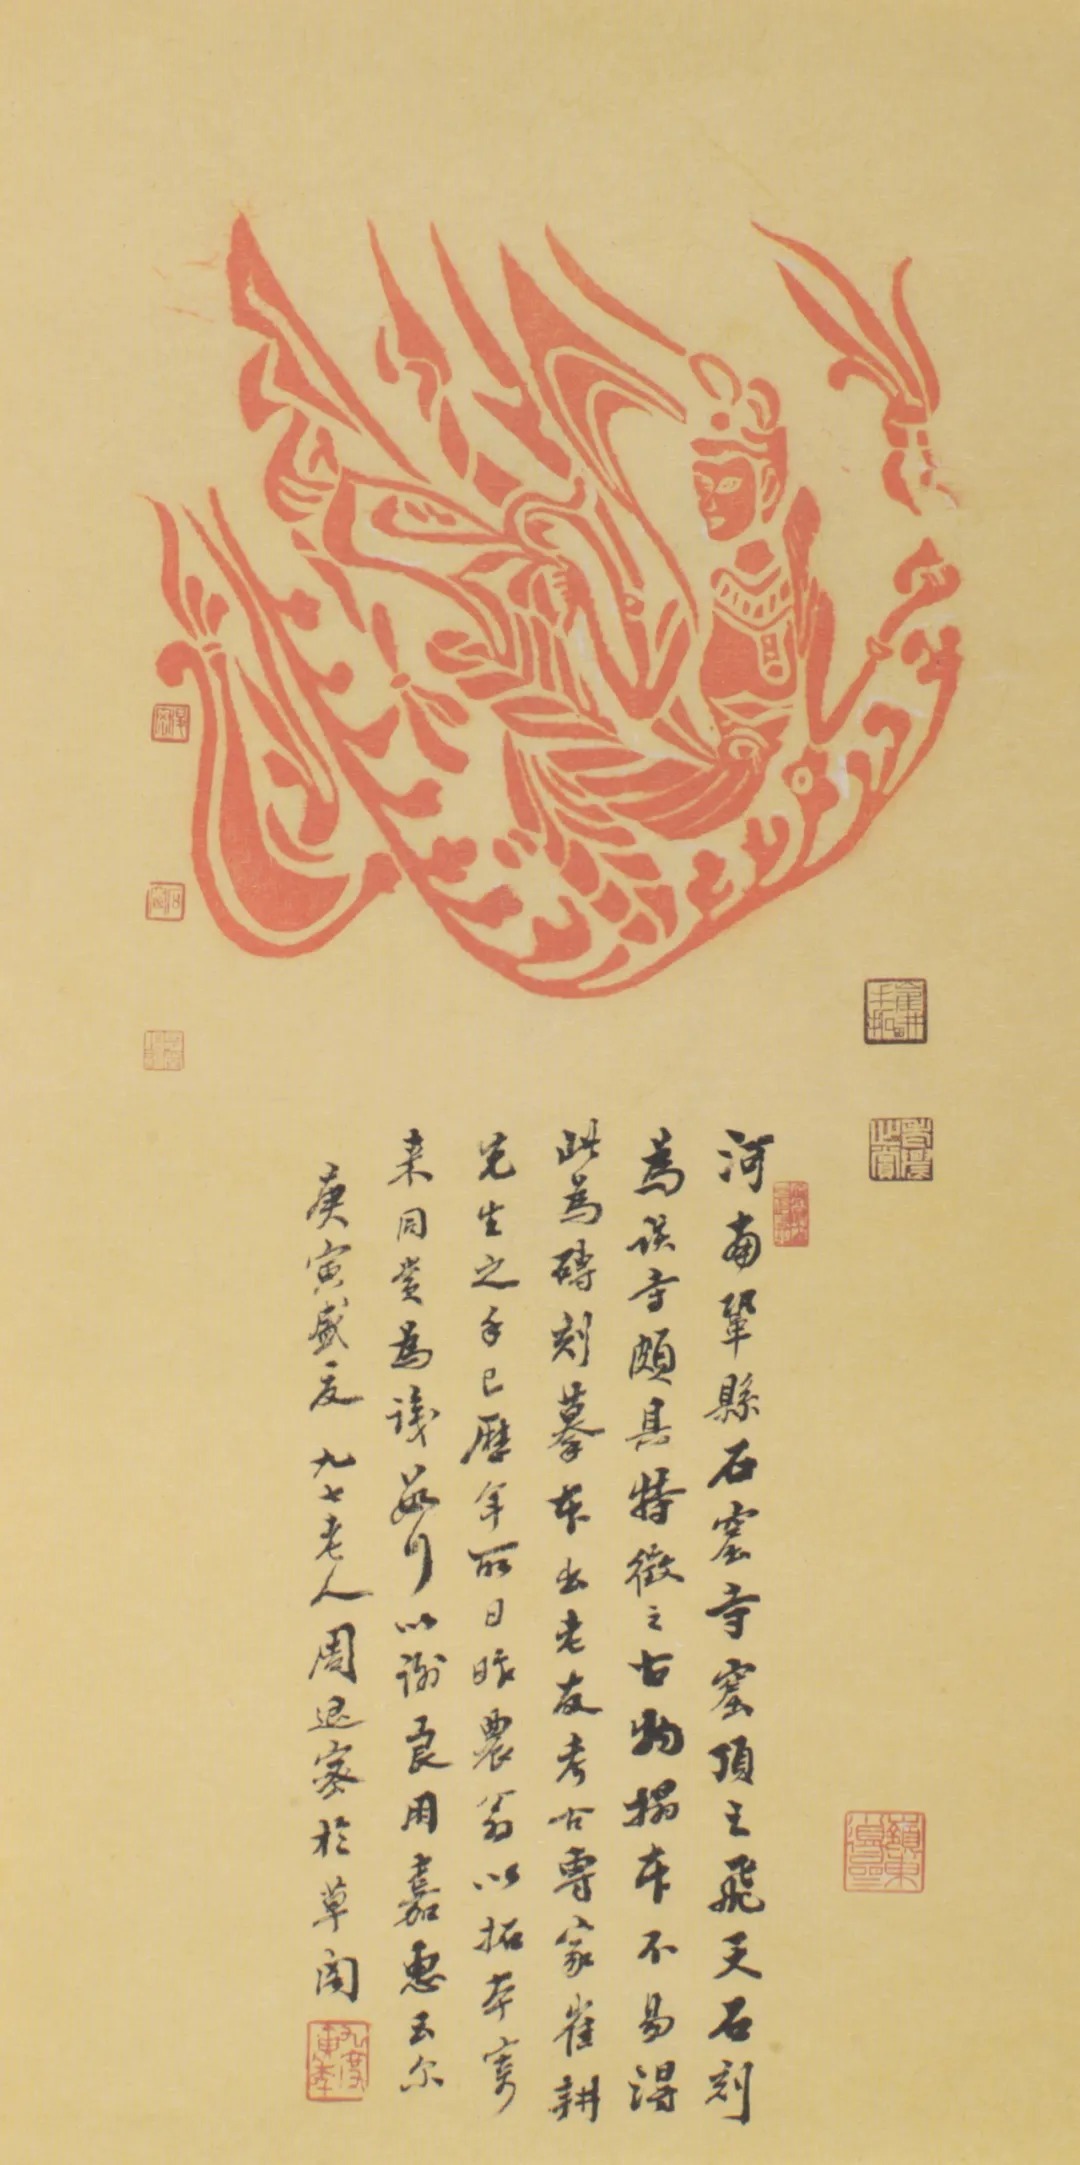 河南鞏縣石窟寺窟頂之飛天石刻
為該寺頗具特徵之古物搨本不易得
此為磚刻摹本出老友考古專家崔耕
先生之手已歷年所日昨農翁以拓本寄
来同賞為識數行以謝良用嘉惠云尔
庚寅盛夏 九七老人周退密於草閣